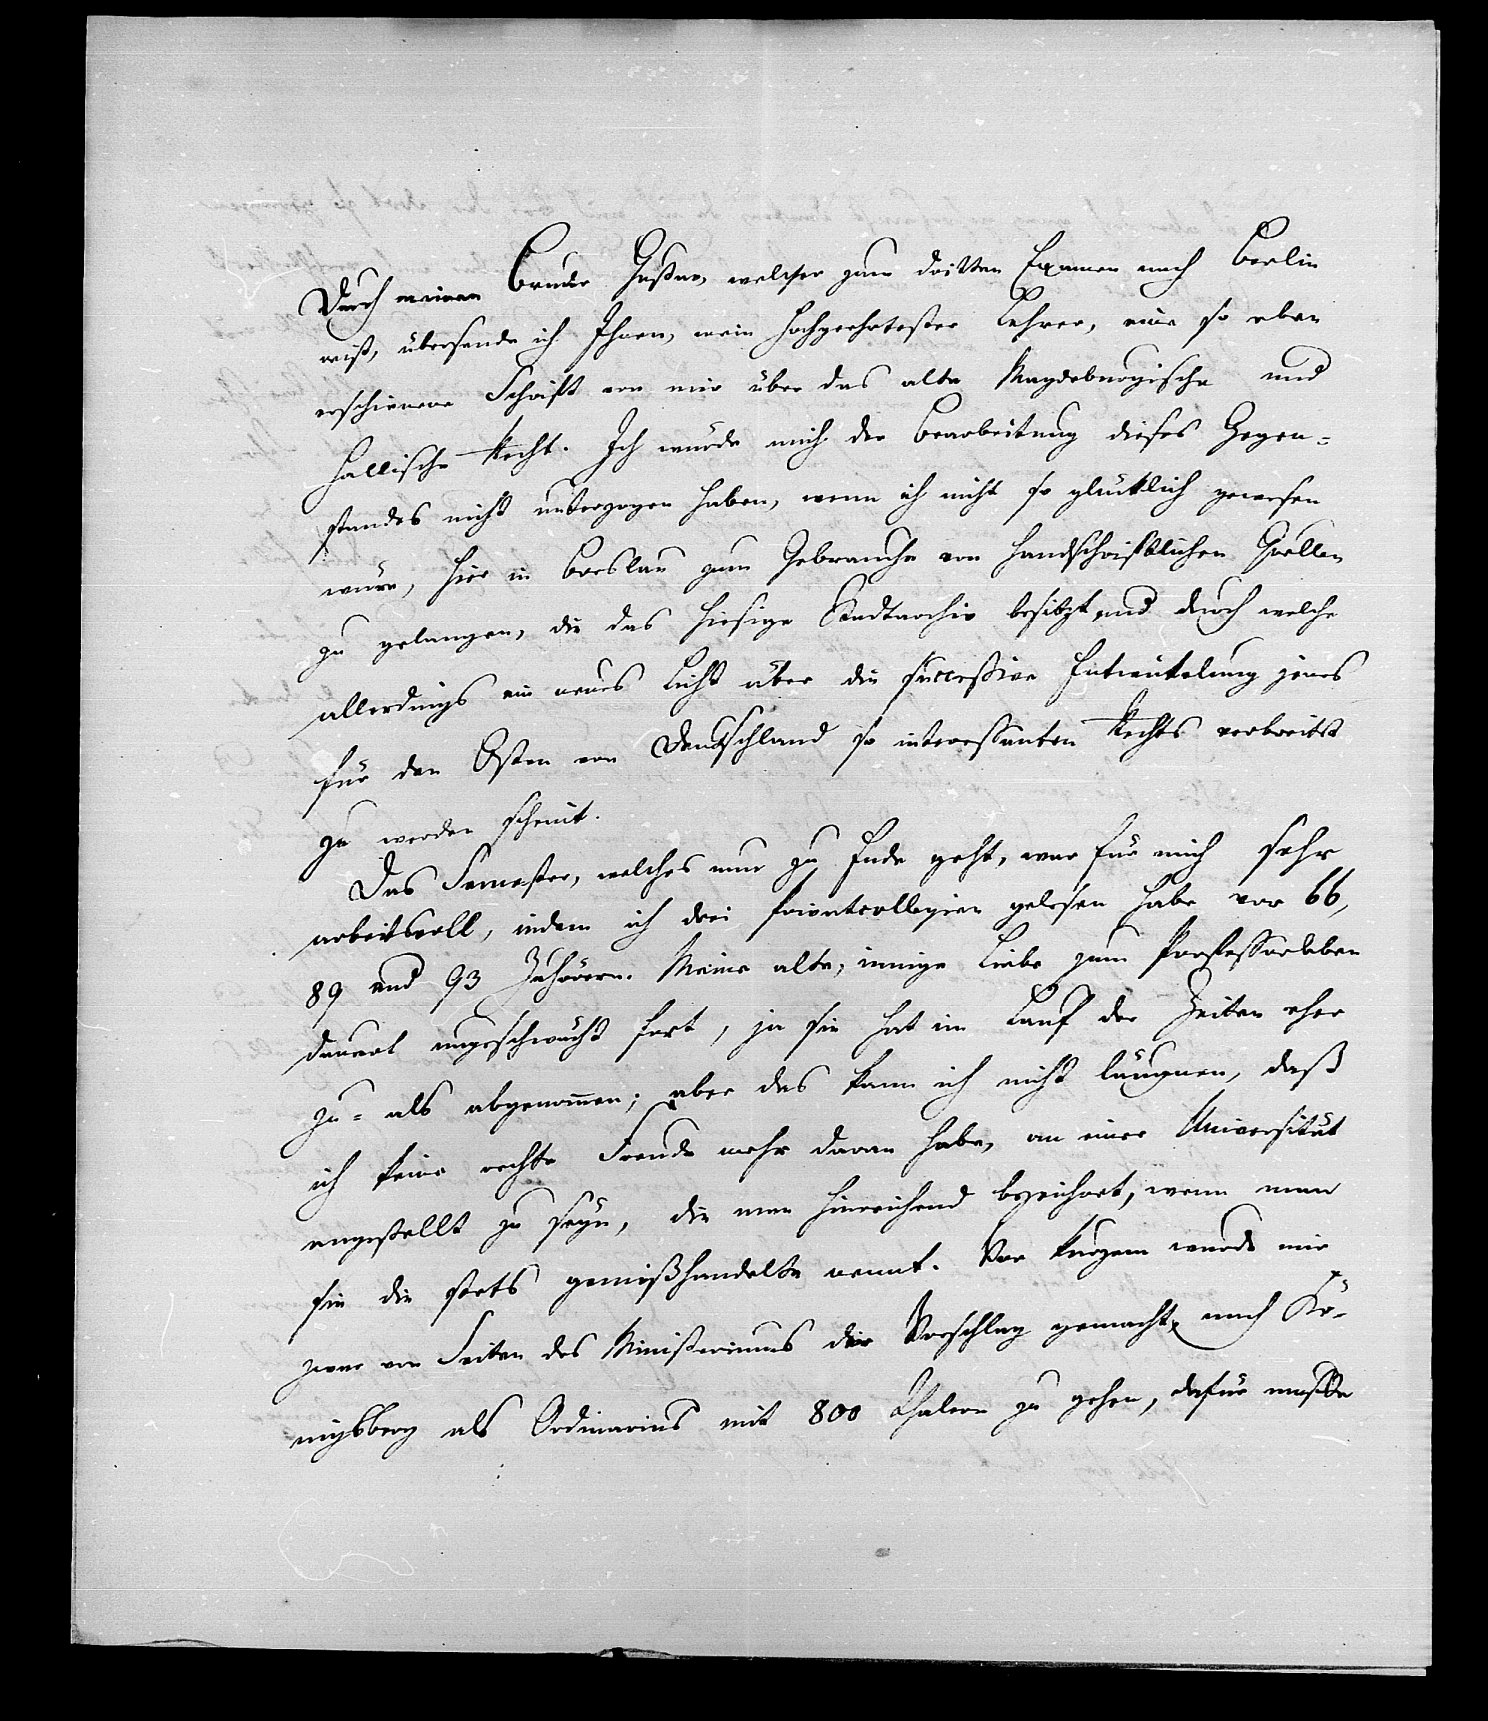 Durch meinen Bruder Gustav, welcher zum dritten Examen nach Berlin
reist, übersende ich Ihnen, mein hochgeehrtester Lehrer, eine so eben
erschienene Schrift von mir über das alte Magdeburgische und
Hallische Recht. Ich würde mich der Bearbeitung dieses Gegen=
standes nicht unterzogen haben, wenn ich nicht so glücklich gewesen
wäre, hier in Breslau zum Gebrauche von handschriftlichen Quellen
zu gelangen, die das hiesige Stadtarchiv besitzt und durch welche
allerdings ein neues Licht über die successive Entwickelung jenes
für den Osten von Deutschland so interessanten Rechts verbreitet
zu werden scheint.
Das Semester, welches nun zu Ende geht, war für mich sehr
arbeitsvoll, indem ich drei Privatcollegien gelesen habe vor 66,
89 und 93 Zuhörern. Meine alte, innige Liebe zum Professorleben
dauert ungeschwächt fort, ja sie hat im Lauf der Zeiten eher
zu= als abgenommen; aber das kann ich nicht läugnen, daß
ich keine rechte Freude mehr daran habe, an einer Universität
angestellt zu seyn, die man hinreichend bezeichnet, wenn man
sie die stets gemißhandelte nennt. Vor kurzem wurde mir
zwar von Seiten des Ministeriums der Vorschlag gemacht, nach Kö-
nigsberg als Ordinarius mit 800 Thalern zu gehen, dafür müßte